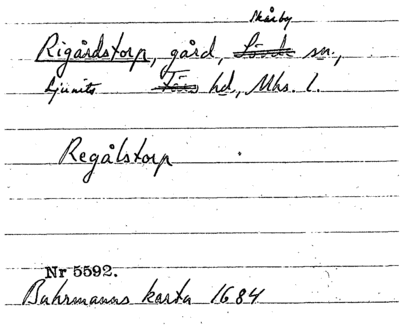 Skårby
Rigårdstorp, gård, sn,
Ljunits hd, Mhs. l.
Regålstorp
Nr 5592.
Buhrmanns karta 1684